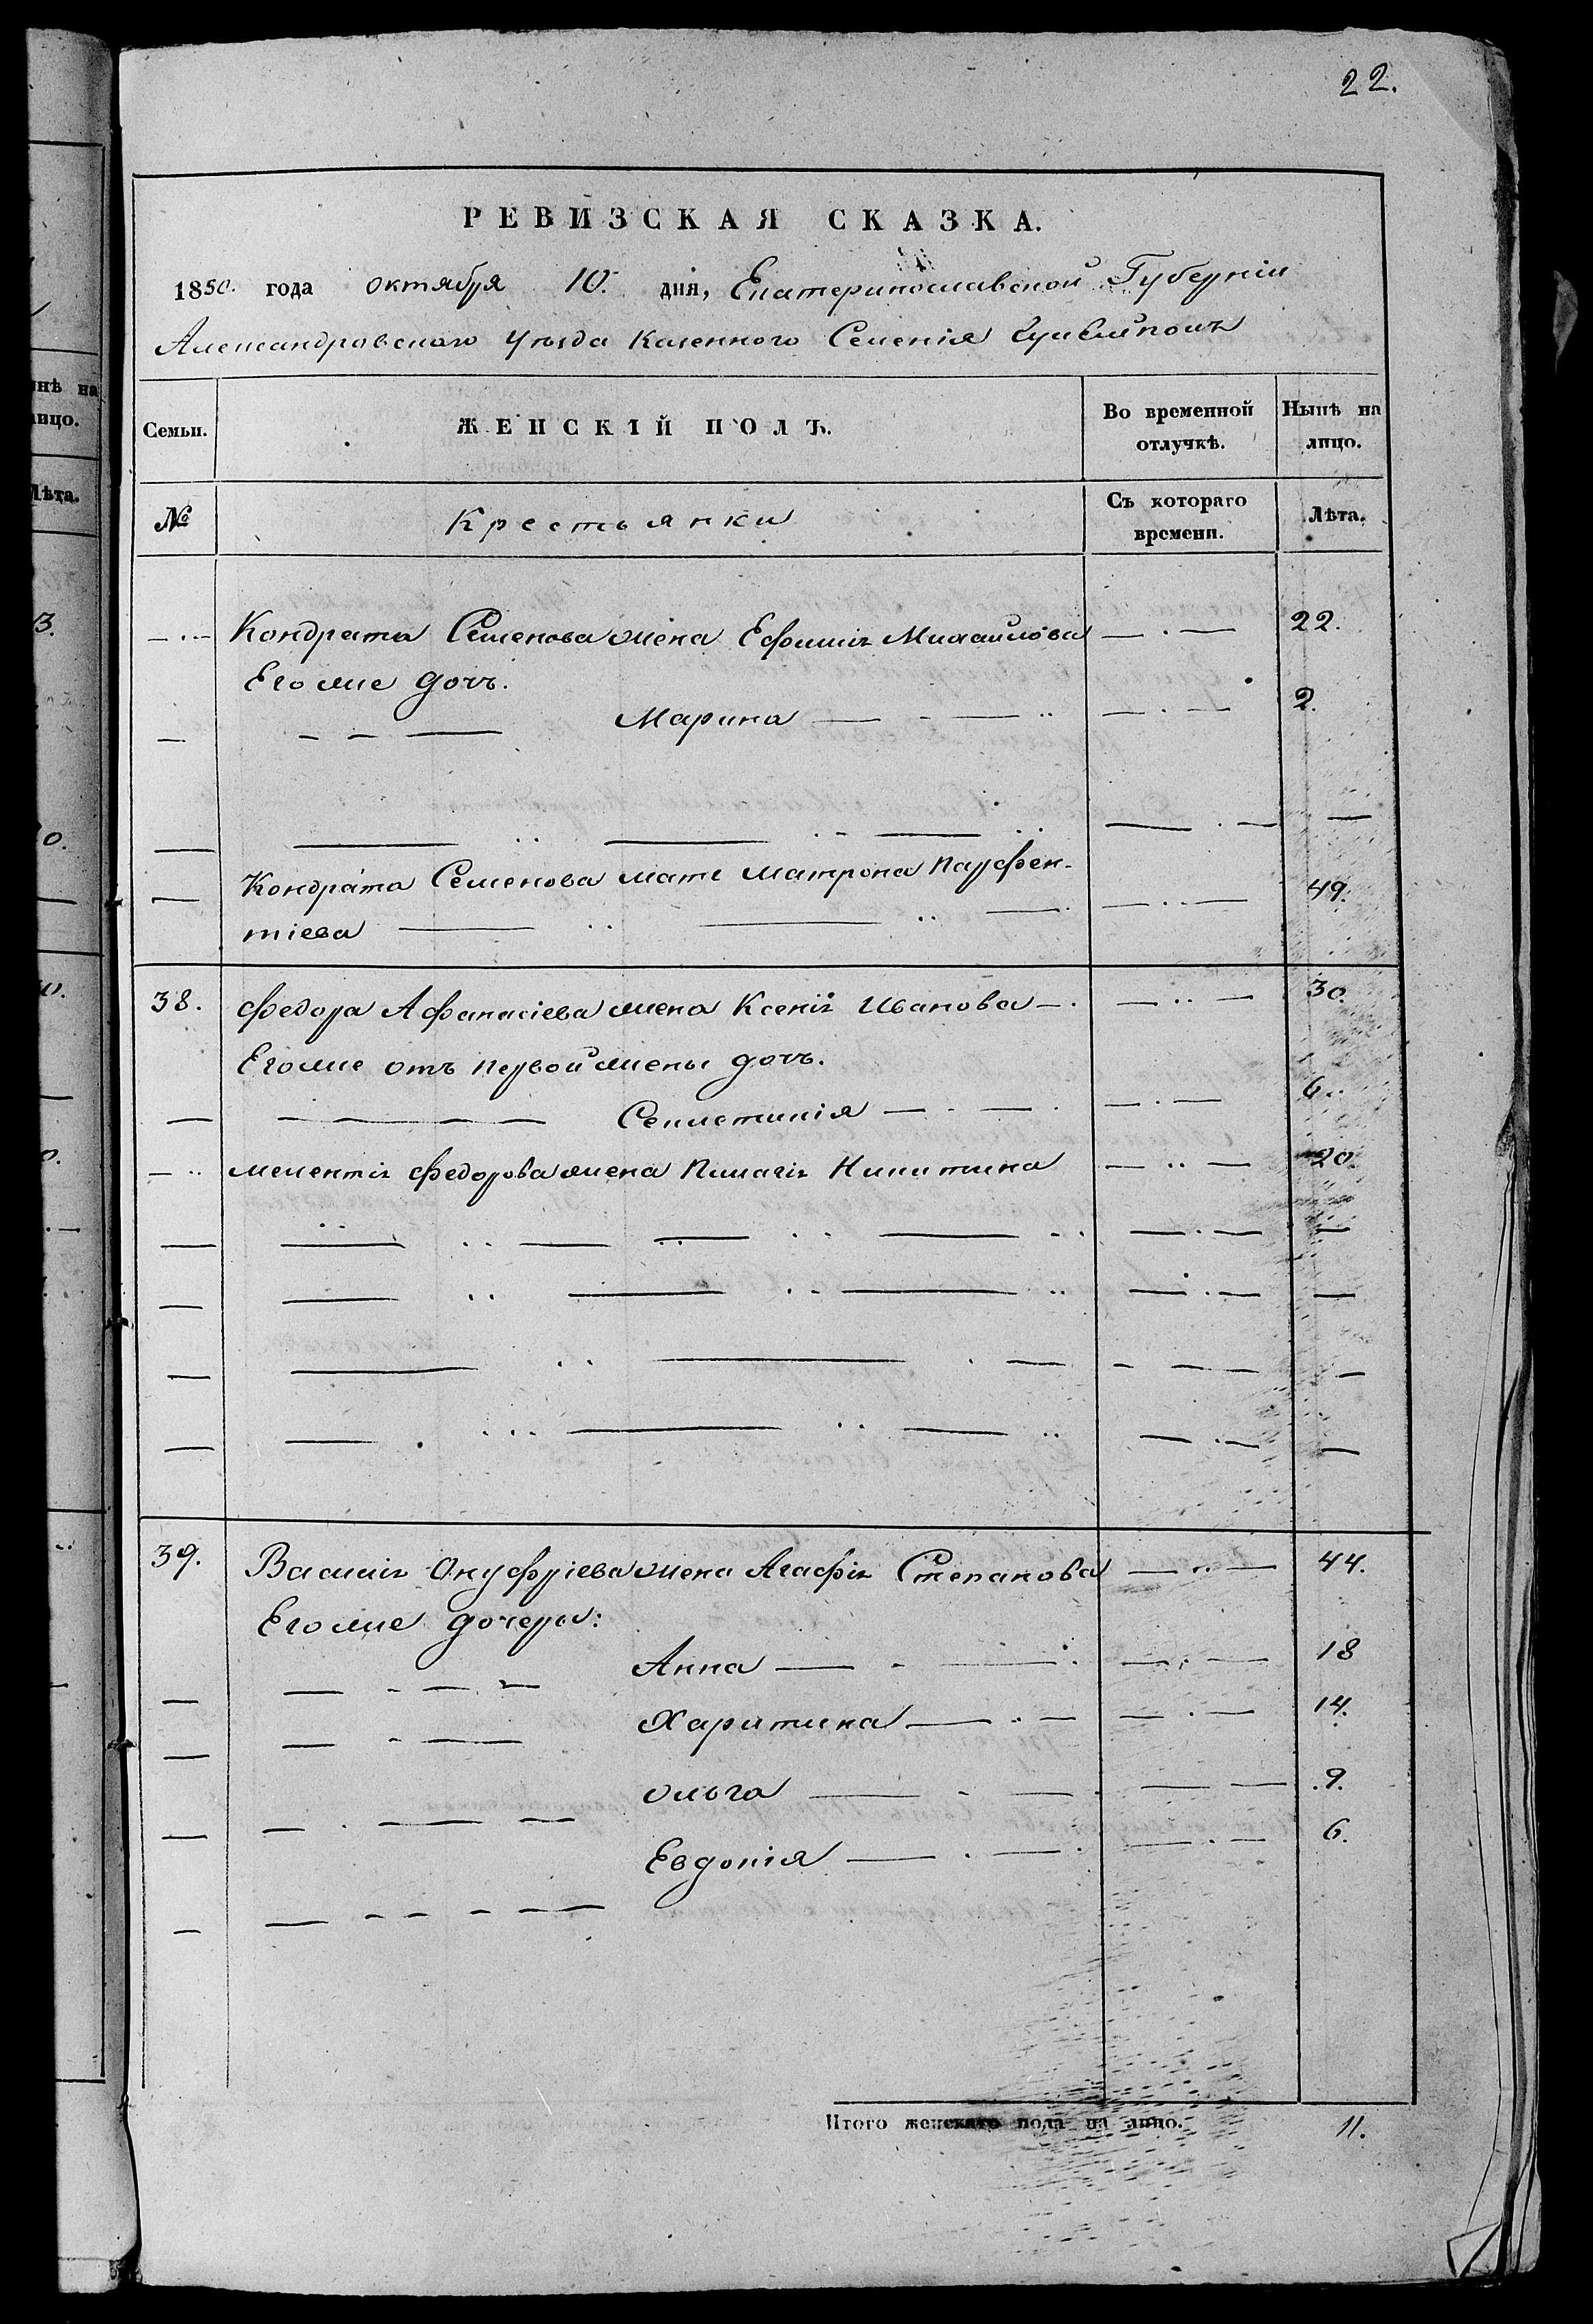 22.
РЕВИЗСКАЯ СКАЗКА.
1850. года октября 10. дня, Екатеринославской Губерніи
Александровскаго Уѣзда Казенного Селенія Гуляйполь
Семьи. ЖЕНСКІЙ ПОЛЪ. Во временной отлучкѣ. Нынѣ на лицо.
№ Крестьянки Съ котораго времени. Лѣта.
Кондрата Семенова жена Ефимія Михайлова 22.
Его же дочь.
Марина 2.
Кондрата Семенова мать Матрона Парфен-
тіева 49.
38. Федора Афанасіева жена Ксенія Иванова 30.
Его же отъ первой жены дочь.
Секлетинія 6.
Мелентія Федорова жена Пилагія Никитина 20.
39. Василія Онуфріева жена Агафія Степанова 44.
Его же дочеры:
Анна 18
Харитина 14.
Ольга 9.
Евдокія 6.
Итого женскаго пола на лицо. 11.
нѣ на
лицо.
Лѣта.
3.
0.